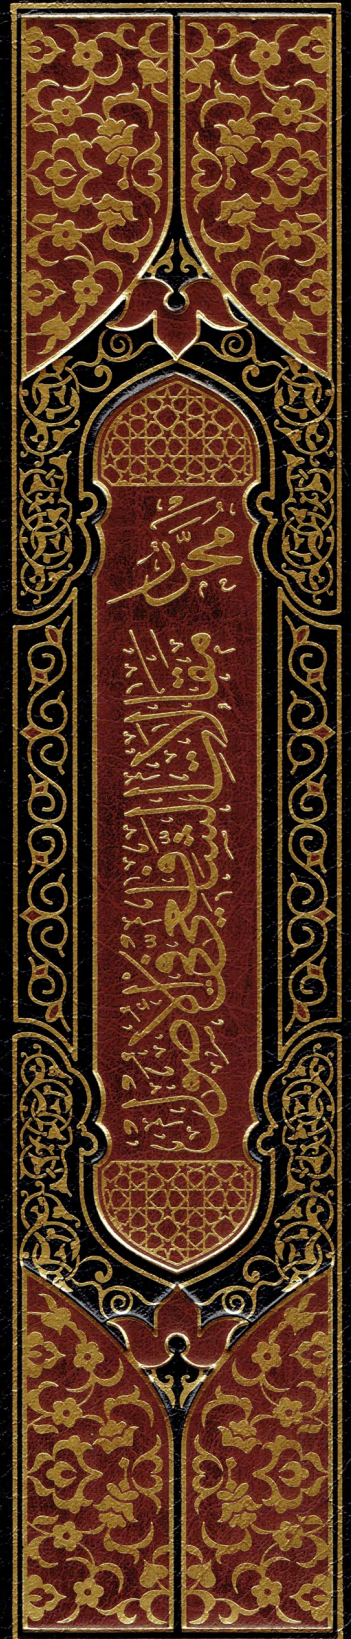 مُحَرَّرُ
مَقَالَاتِ الشَّافِعِيِّ فِي الأُصُولِ